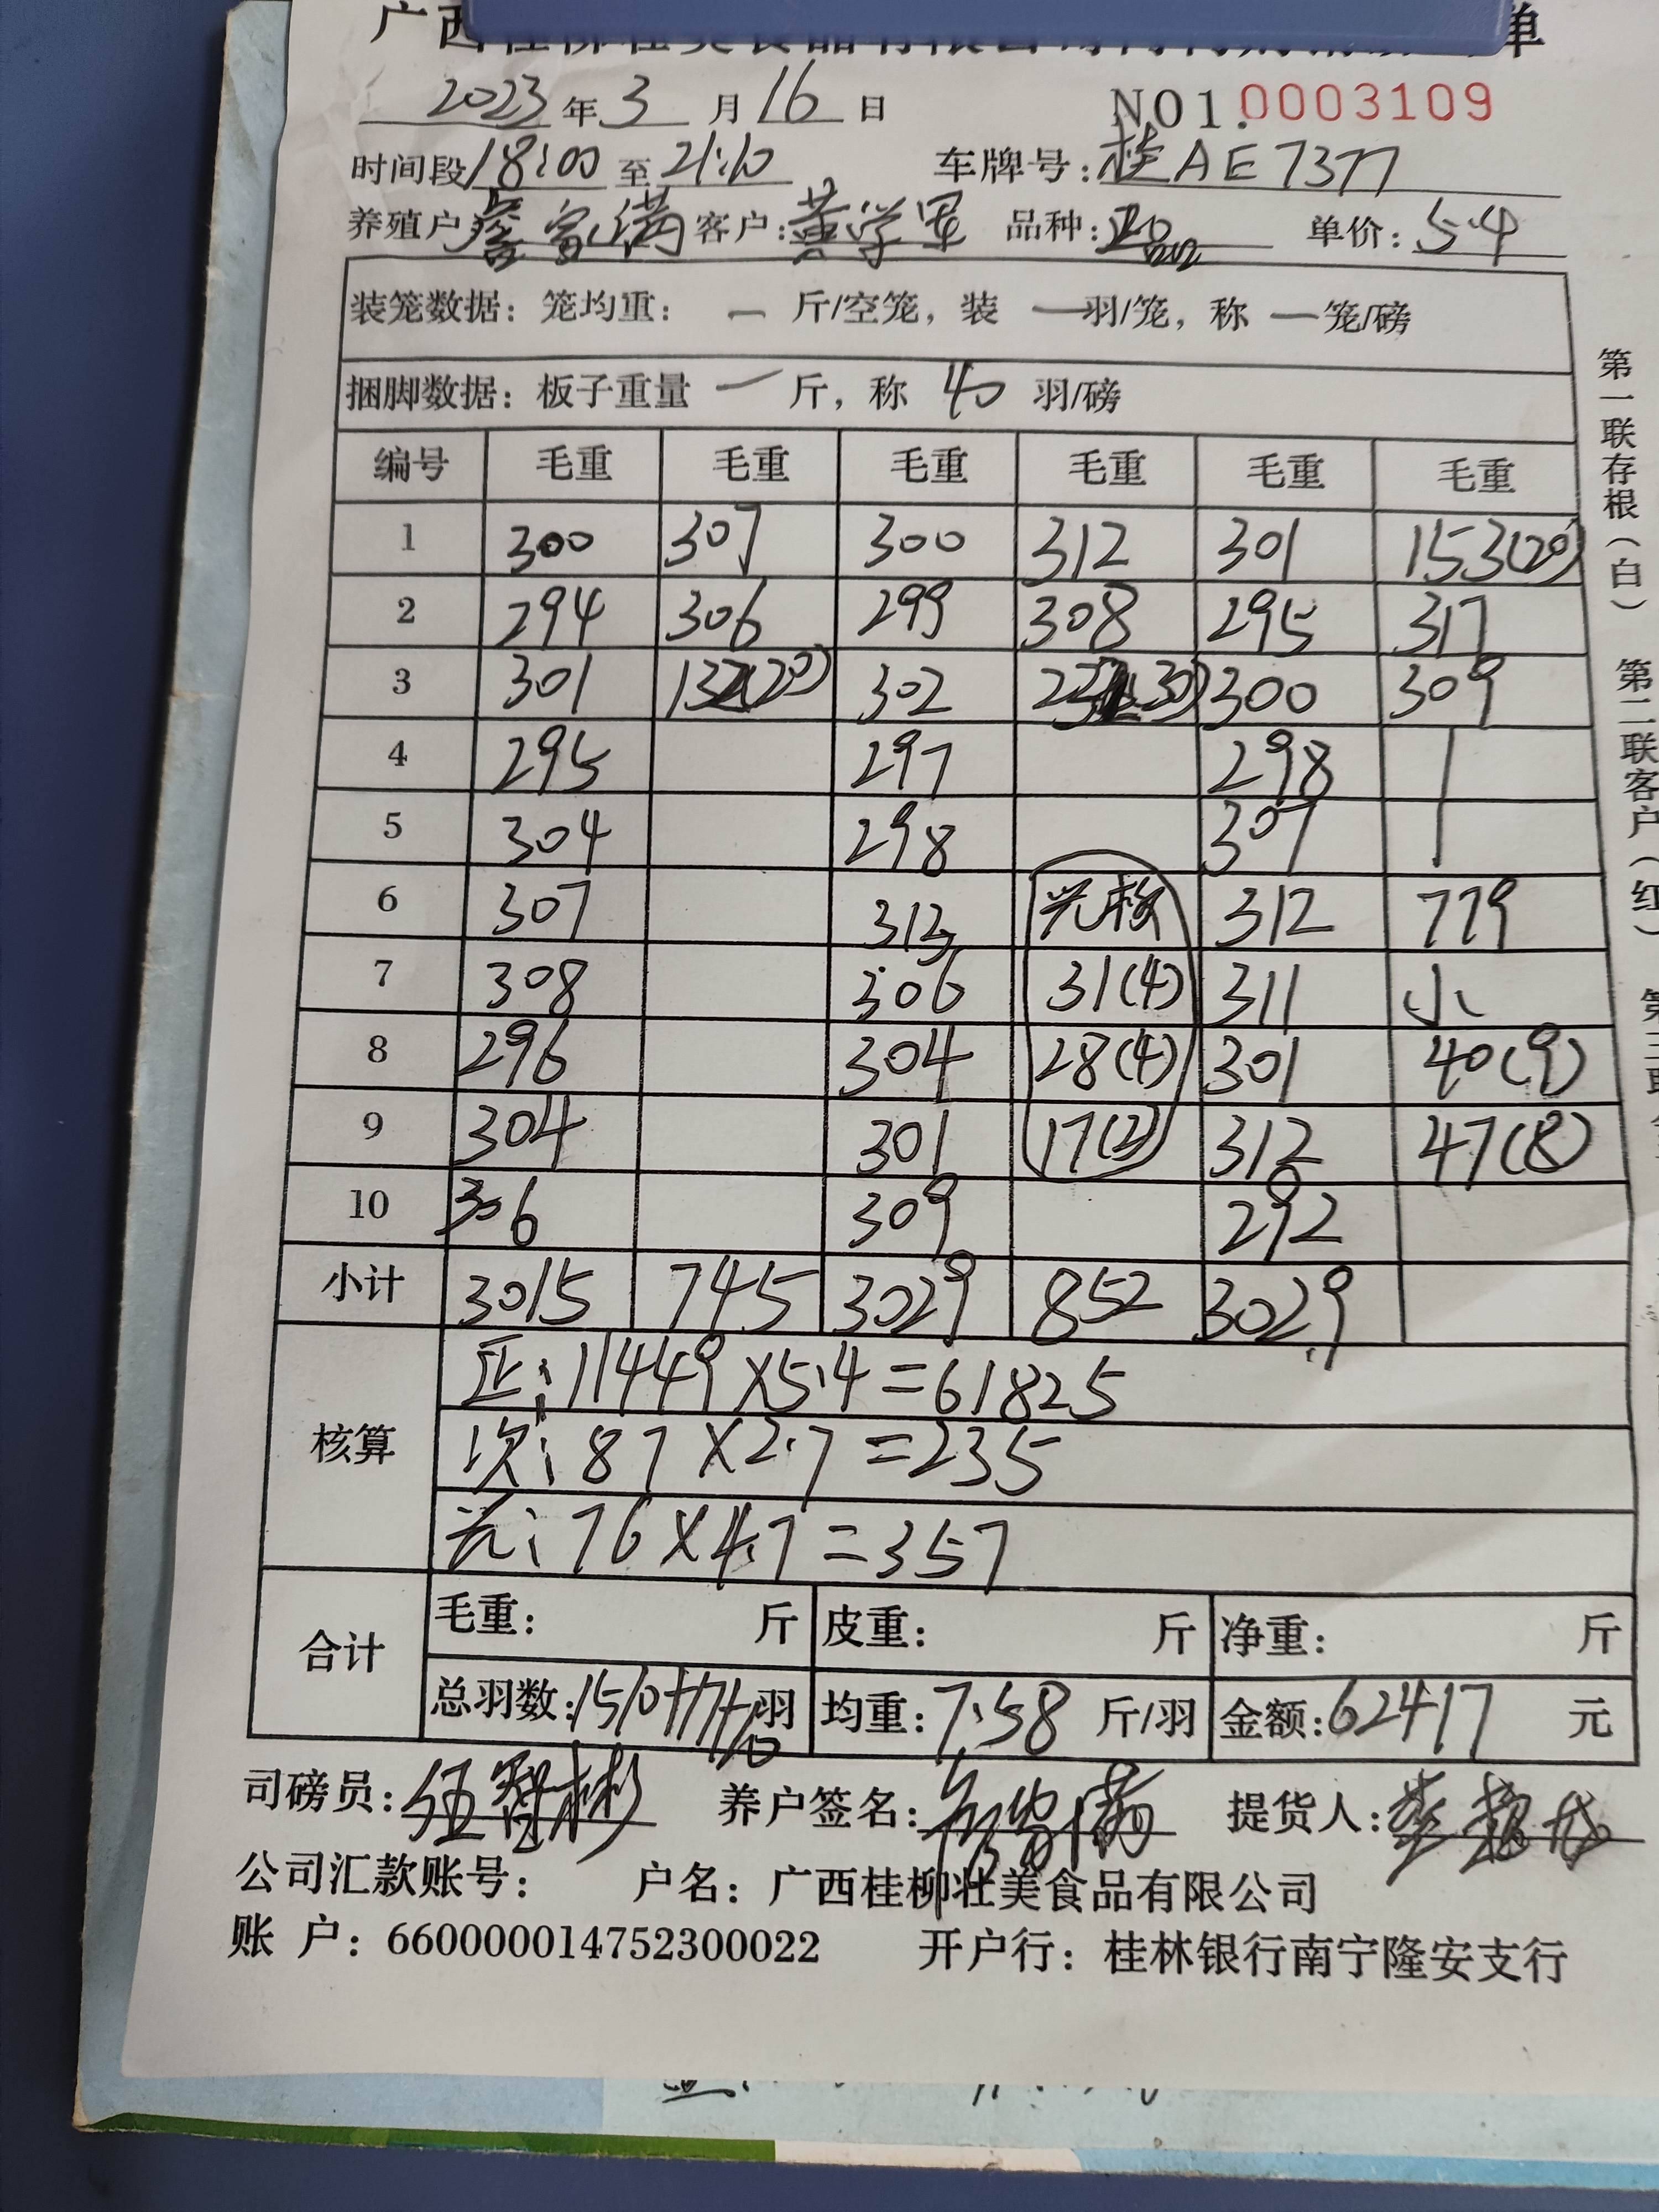 2023年3月16日 NO1.0003109
时间段18:00至21:10 车牌号:桂AE7377
养殖户 富满 客户:黄学军 品种: 单价:5.4
装笼数据：笼均重：一斤/空笼，装一羽/笼，称一笼/磅
捆脚数据：板子重量一斤，称40羽/磅
编号 毛重 毛重 毛重 毛重 毛重 毛重
1 300 307 300 312 301 153(20)
2 294 306 299 308 295 317
3 301 132(20) 302 300 309
4 295 297 298
5 304 298 307
6 307 313 312 779
7 308 306 31(4) 311 小
8 296 304 28(4) 301 40(9)
9 304 301 17(2) 312 47(8)
10 306 309 292
小计 3015 745 3029 852 3029
正:11449×5.4=61825
核算 次:87×2.7=235
76×4.7=357
合计 毛重: 斤 皮重: 斤 净重: 斤
总羽数:1510+17+10羽 均重:7.58斤/羽 金额:62417元
司磅员:伍智彬 养户签名: 富满 提货人:
公司汇款账号： 户名：广西桂柳壮美食品有限公司
账 户：660000014752300022 开户行：桂林银行南宁隆安支行
第一联存根(白) 第二联客户(红)